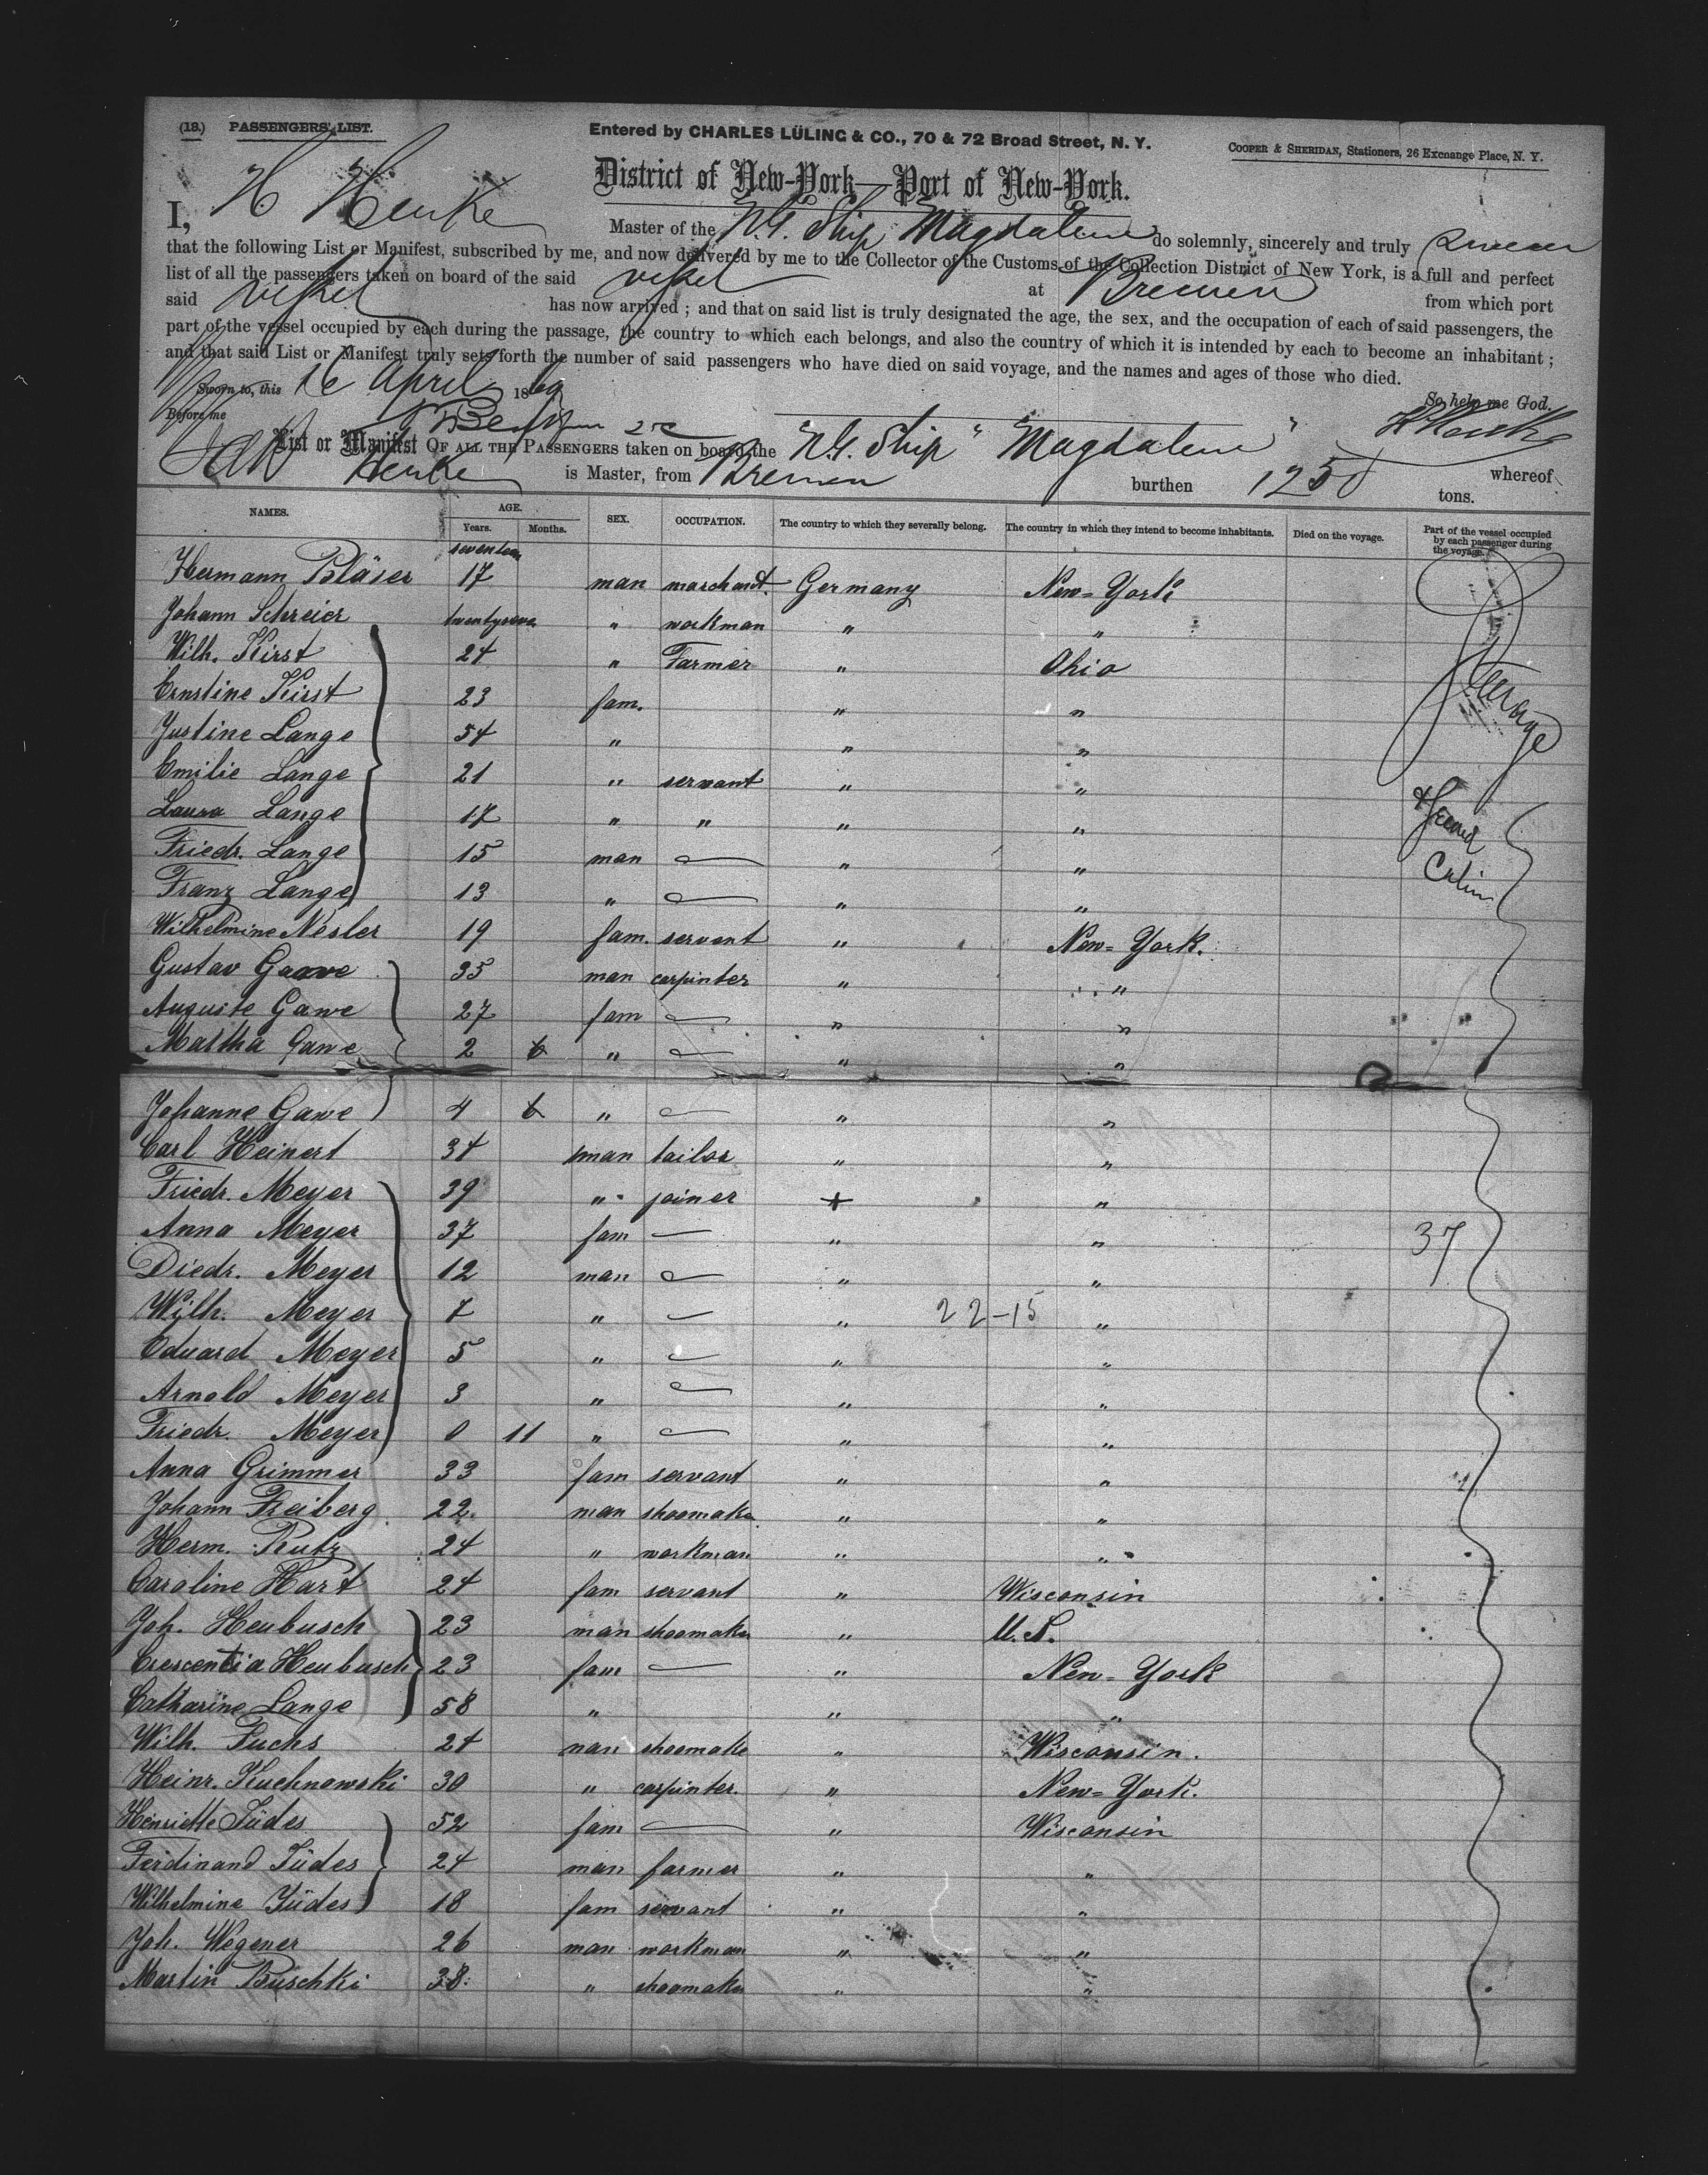 (18.) PASSENGERS' LIST.
Entered by CHARLES LÜLING & CO., 70 & 72 Broad Street, N. Y.
COOPER & SHERIDAN, Stationers, 26 Exchange Place, N. Y.
District of New-York—Port of New-York.
I, H Henke Master of the N.G. Ship Magdalene do solemnly, sincerely and truly swear
that the following List or Manifest, subscribed by me, and now delivered by me to the Collector of the Customs of the Collection District of New York, is a full and perfect
list of all the passengers taken on board of the said vessel at Bremen from which port
said vessel has now arrived ; and that on said list is truly designated the age, the sex, and the occupation of each of said passengers, the
part of the vessel occupied by each during the passage, the country to which each belongs, and also the country of which it is intended by each to become an inhabitant ;
and that said List or Manifest truly sets forth the number of said passengers who have died on said voyage, and the names and ages of those who died.
Sworn to, this 16 April 1869 So help me God.
Before me H Henke
List or Manifest OF ALL THE PASSENGERS taken on board the "N.G. Ship "Magdalene" whereof
Henke is Master, from Bremen burthen 1250 tons.
NAMES. AGE. Years. Months. SEX. OCCUPATION. The country to which they severally belong. The country in which they intend to become inhabitants. Died on the voyage. Part of the vessel occupied by each passenger during the voyage.
seventeen
Hermann Bläser 17 man marchant. Germany New-York
Johann Schreier twentyseven " workman " "
Wilh. Kirst 24 " Farmer " Ohio
Steerage
Ernstine Kirst 23 fam. " "
Justine Lange 54 " " "
Emilie Lange 21 " servant " "
& Second
Laura Lange 17 " " " "
Friedr. Lange 15 man — " "
Cabin
Franz Lange 13 " — " "
Wilhelmine Nesler 19 fam. servent " New-York.
Gustav Gawe 35 man carpinter " "
Auguste Gawe 27 fam — " "
Martha Gawe 2 6 " — " "
Johanne Gawe 4 6 " — " "
Carl Heinert 34 man tailor " "
Friedr. Meyer 39 " joiner + "
Anna Meyer 37 fam — " " 37
Diedr. Meyer 12 man — " "
Wilh. Meyer 7 " — " 22-15 "
Eduard Meyer 5 " — " "
Arnold Meyer 3 " — " "
Friedr. Meyer 0 11 " — " "
Anna Grimmer 33 fam servant " "
Johann Freiberg 22 man shoemaker " "
Herm. Rutz 24 " workman " "
Caroline Hart 24 fam servant " Wisconsin
Joh. Heubusch 23 man shoemaker " U. S.
Crescentia Heubusch 23 fam — " New-York
Catharine Lange 58 " " "
Wilh. Fuchs 24 man shoemake " Wisconsin.
Heinr. Kuchnowski 30 " carpinter. " New-York.
Henriette Jüdes 52 fam — " Wisconsin
Ferdinand Jüdes 24 man farmer " "
Wilhelmine Jüdes 18 fam servant " "
Joh. Wegener 26 man workman " "
Martin Buschki 38. " shoemaker " "